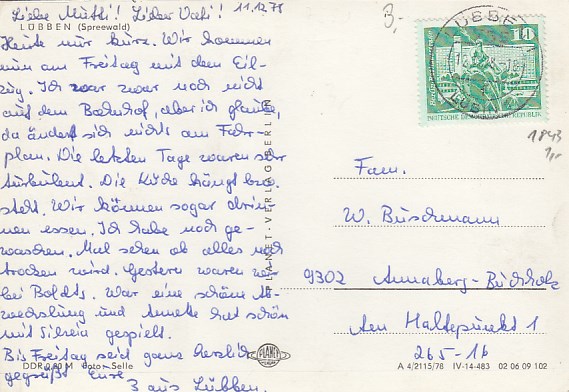 Liebe Mutti! Lieber Vati! 11.12.78
LÜBBEN (Spreewald)
Heute nur kurz. Wir kommen
nun am Freitag mit dem Eil-
zug. Ich war zwar noch nicht
auf dem Bahnhof, aber ich glaube,
da ändert sich nichts am Fahr-
plan. Die letzten Tage waren sehr
turbulent. Die Küche hängt bzw.
steht. Wir können sogar drin-
nen essen. Ich habe noch ge-
waschen. Mal sehen ob alles noch
trocken wird. Gestern waren wir
bei Boldts. War eine schöne Ab-
wechslung und Annete hat schön
mit Silvia gespielt.
Bis Freitag seid ganz herzlich
gegrüßt Eure
3 aus Lübben.
DDR 0,20 M Foto: Selle
PLANET-VERLAG BERLIN
PLANET
3,-
LÜBBEN
10
DEUTSCHE DEMOKRATISCHE REPUBLIK
1843
1,-
Fam.
W. Buschmann
9302 Annaberg-Buchholz
Am Haltepunkt 1
265-16
A 4/2115/78 IV-14-483 02 06 09 102